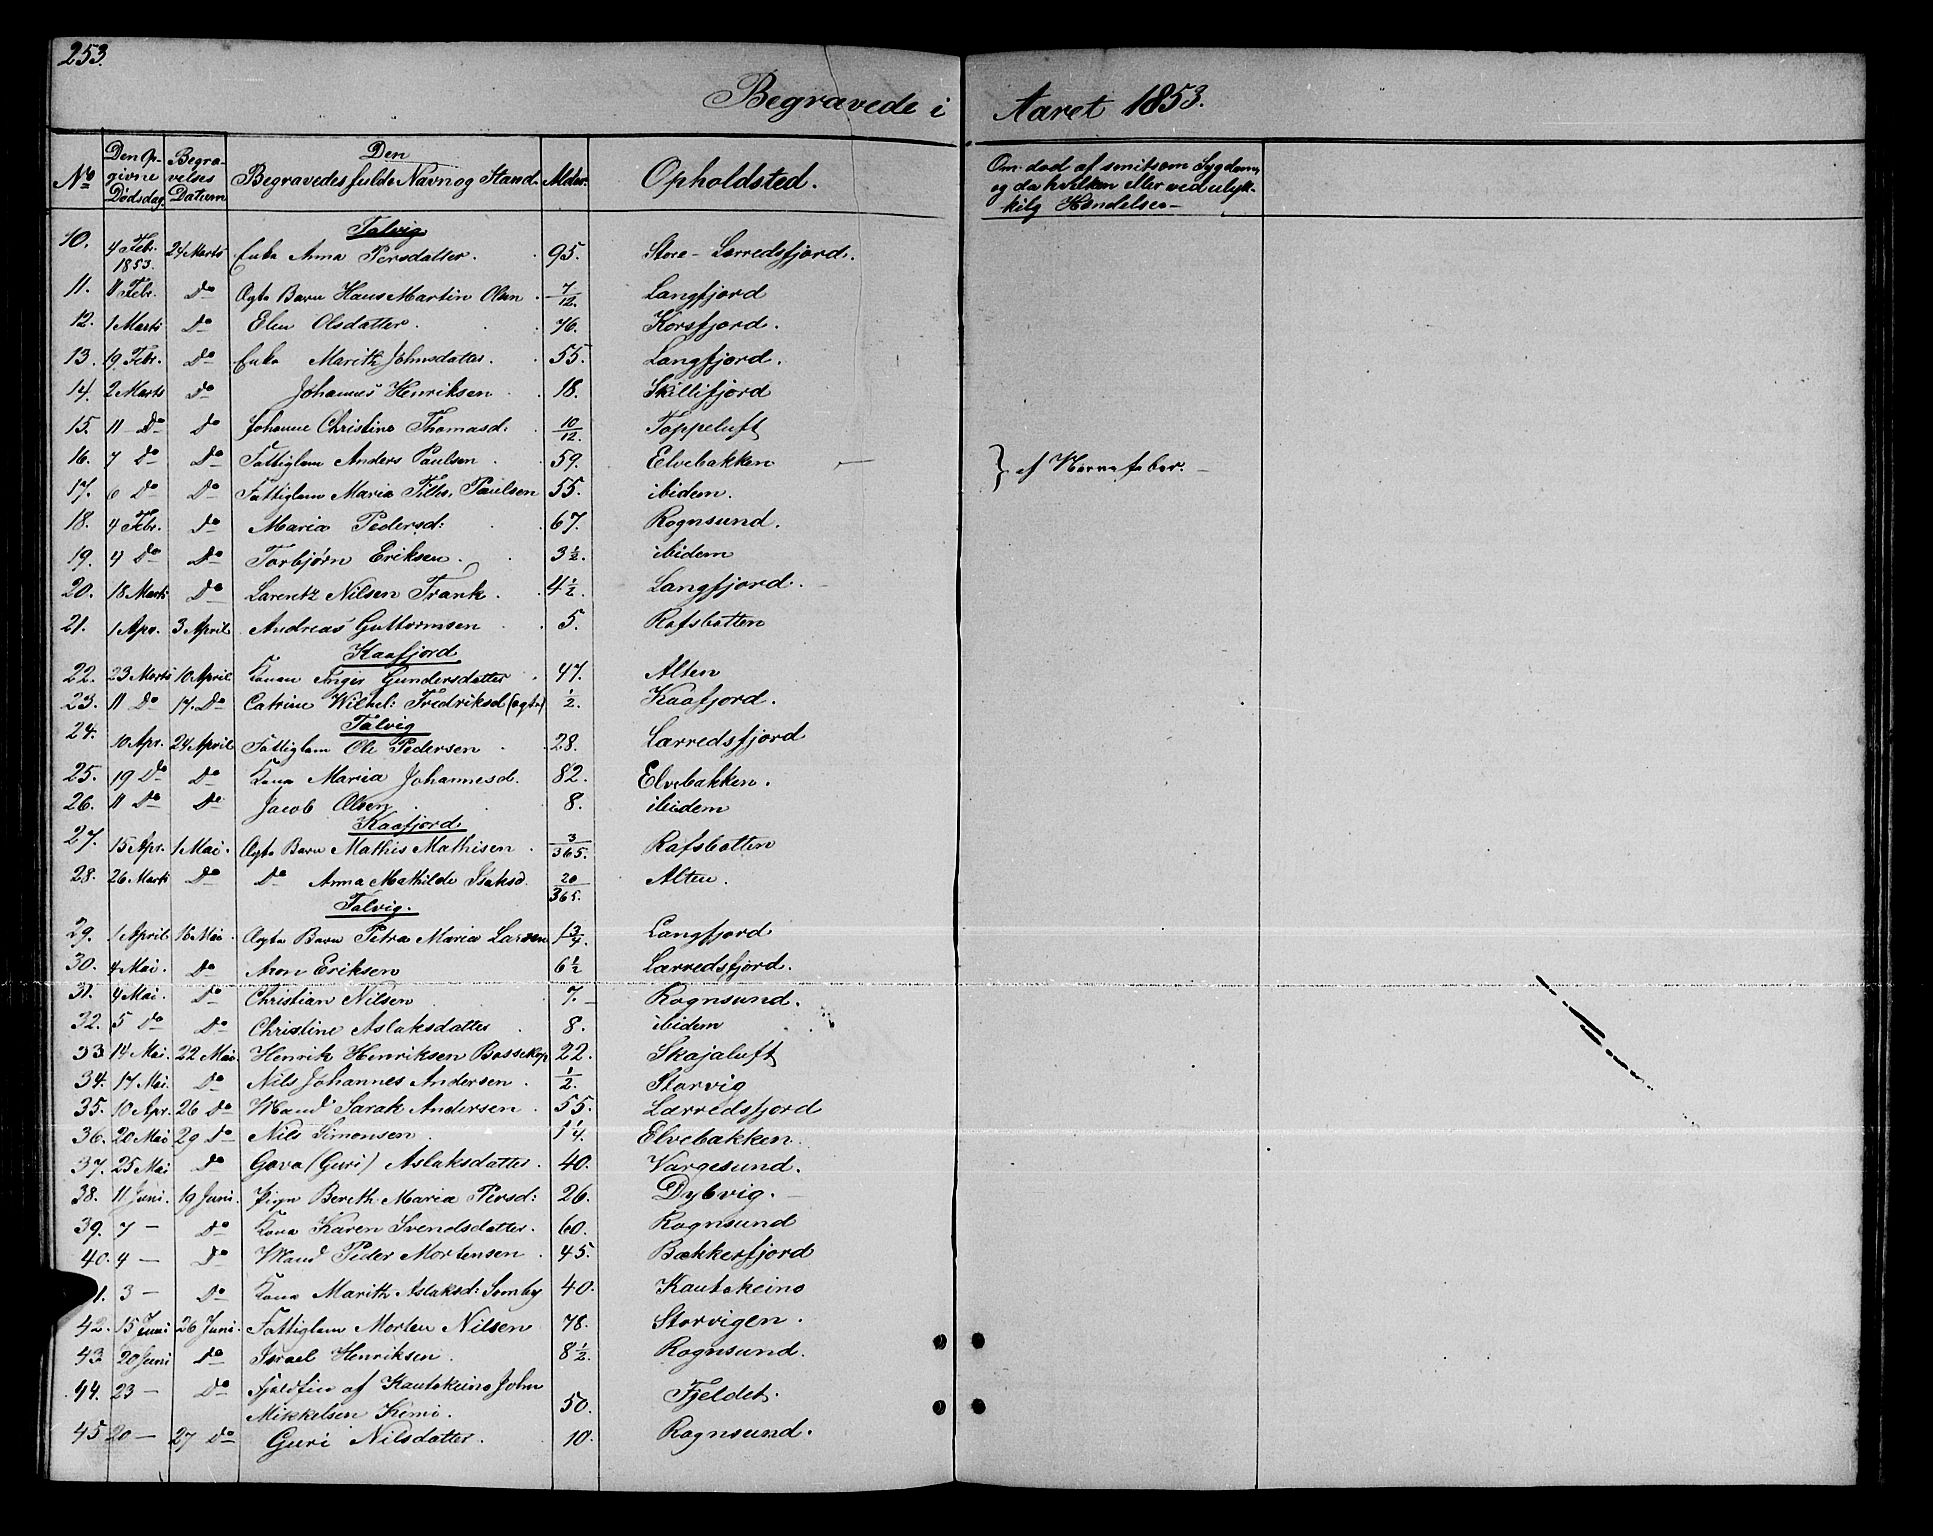 253.
Begravede i Aaret 1853.
No Den Opgivne Dødsdag. Begravelses Datum Den Begravedes fulde Navn og Stand. Alder. Opholdsted. Om død af smitsom Sygdom, og da hvilken eller ved ulykkelig Hændelse—
Talvig
10. 4 Febr. 1853. 24 Marts Enke Anna Persdatter. 95. Store-Lærredsfjord.
11. 11 Febr. Do Ægte Barn Hans Martin Olsen. 7/12. Langfjord
12. 1 Marts Do Elen Olsdatter. 76. Korsfjord.
13. 19 Febr. Do Enke Marith Johnsdatter. 55. Langfjord.
14. 2 Marts Do Johannes Henriksen 18. Skillifjord
15. 11 Do Do Johanne Christine Thomasd: 10/12. Toppeluft
16. 7 Do Do Fattiglem Anders Paulsen. 59. Elvebakken — } af Nervefeber. —
17. 6 Do Do Fattiglem Maria Paulsen 55. ibidem.
18. 4 Febr. Do Maria Pedersd: 67. Rognsund.
19. 4 Do Do Torbjørn Eriksen. 3 1/2. ibidem
20. 18 Marts Do Larentz Nilsen Frank. 4 1/2. Langfjord.
21. 1 Apr. 3 April Andreas Guttormsen 5. Rafsbotten
Kaafjord
22. 23 Marts 10 April Konen Inger Gundersdatter. 47. Alten
23. 11 Do 17. Do Catrine Wilhel: Fredriksd (ægte) 1/2. Kaafjord.
Talvig
24. 10 Apr. 24 April Fattiglem Ole Pedersen 28. Lærredsfjord
25. 19 Do Do Kona Maria Johannesd. 82. Elvebakken.
26. 11 Do Do Jacob Olsen. 8. ibidem
Kaafjord
27. 15 Apr. 1 Mai. Ægte Barn Mathis Mathisen. 3/365. Rafsbotten
28. 26 Marts Do Do Anna Mathilde Isaksd. 20/365. Alten.
Talvig.
29. 1 April 16 Mai. Ægte Barn Petra Maria Larsen 1 3/4. Langfjord
30. 4 Mai. Do Aron Eriksen 6 1/2 Lærredsfjord.
31. 4 Mai. Do Christian Nilsen 7.— Rognsund.
32. 5 Do Do Christine Aslaksdatter 8. ibidem
33. 14 Mai. 22 Mai. Henrik Henriksen Bossekop 22. Skajaluft
34. 17 Mai. Do Nils Johannes Andersen. 1/2. Storvig
35. 10 Apr. 26 Do Mand Sarak Andersen. 55. Lærredsfjord
36. 20 Mai 29 Do Nils Simonsen. 1 1/4. Elvebakken.
37. 25 Mai Do Gava (Guri) Aslaksdatter. 40. Vargesund.
38. 11 Juni. 19 Juni. Pign Bereth Maria Persd: 26. Dybvig. —
39. 7 — Do Kona Karen Svendsdatter. 60. Rognsund
40. 4 — Do Mand Peder Mortensen 45. Bækkerfjord
1. 3 — Do Kona Marith Aslaksd: Somby 40. Kautokeino
42. 15 Juni 26 Juni. Fattiglem Morten Nilsen 78. Storvigen.
43. 20 Juni Do Israel Henriksen. 8 1/2. Rognsund.
44. 23 — Do Fjeldfin af Kautokeino John
Mikkelsen Kemi. 50. Fjeldet.
45 20 — 27 Do Guri Nilsdatter. 10. Rognsund.